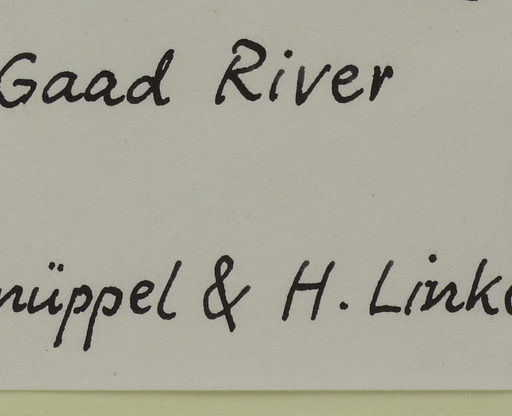 Gaad River
nüppel & H. Linke